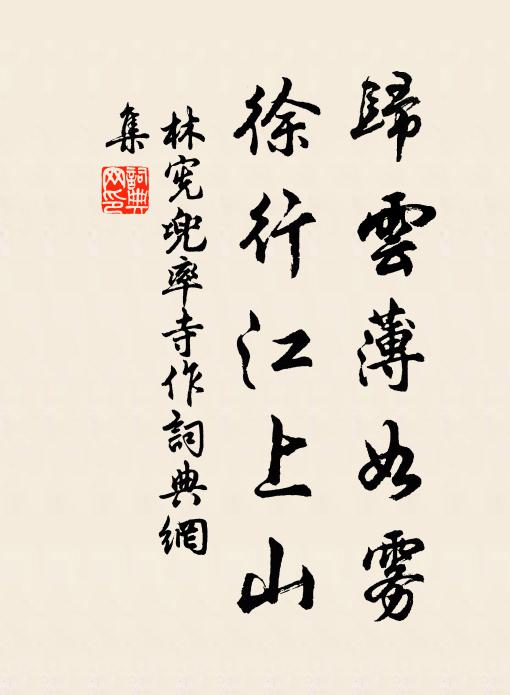 歸雲薄如霧
徐行江上山
林宪兜率寺作詞典網
集
詞典網印